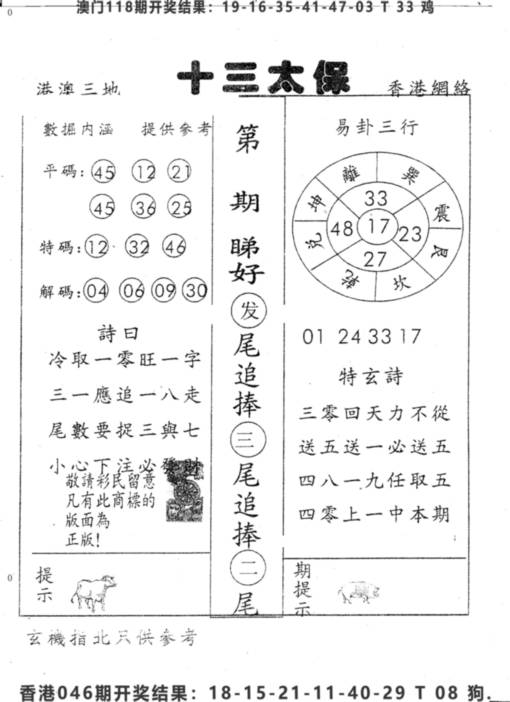 澳门118期开奖结果：19-16-35-41-47-03 T 33 鸡
港澳三地
十三太保
香港網絡
數据内涵 提供参考
平碼：45 12 21
45 36 25
特碼：12 32 46
解碼：04 06 09 30
詩曰
冷取一零旺一字
三一應追一八走
尾數要捉三與七
小心下注必發財
敬請彩民留意
凡有此商標的
版面為
正版！
提示
第
期
睇好
发
尾追捧
三
尾追捧
二
尾
易卦三行
離 巽 震 艮 坎 乾 兌 坤
33
48 17 23
27
01 24 33 17
特玄詩
三零回天力不從
送五送一必送五
四八一九任取五
四零上一中本期
期提示
玄機指北只供參考
香港046期开奖结果：18-15-21-11-40-29 T 08 狗.